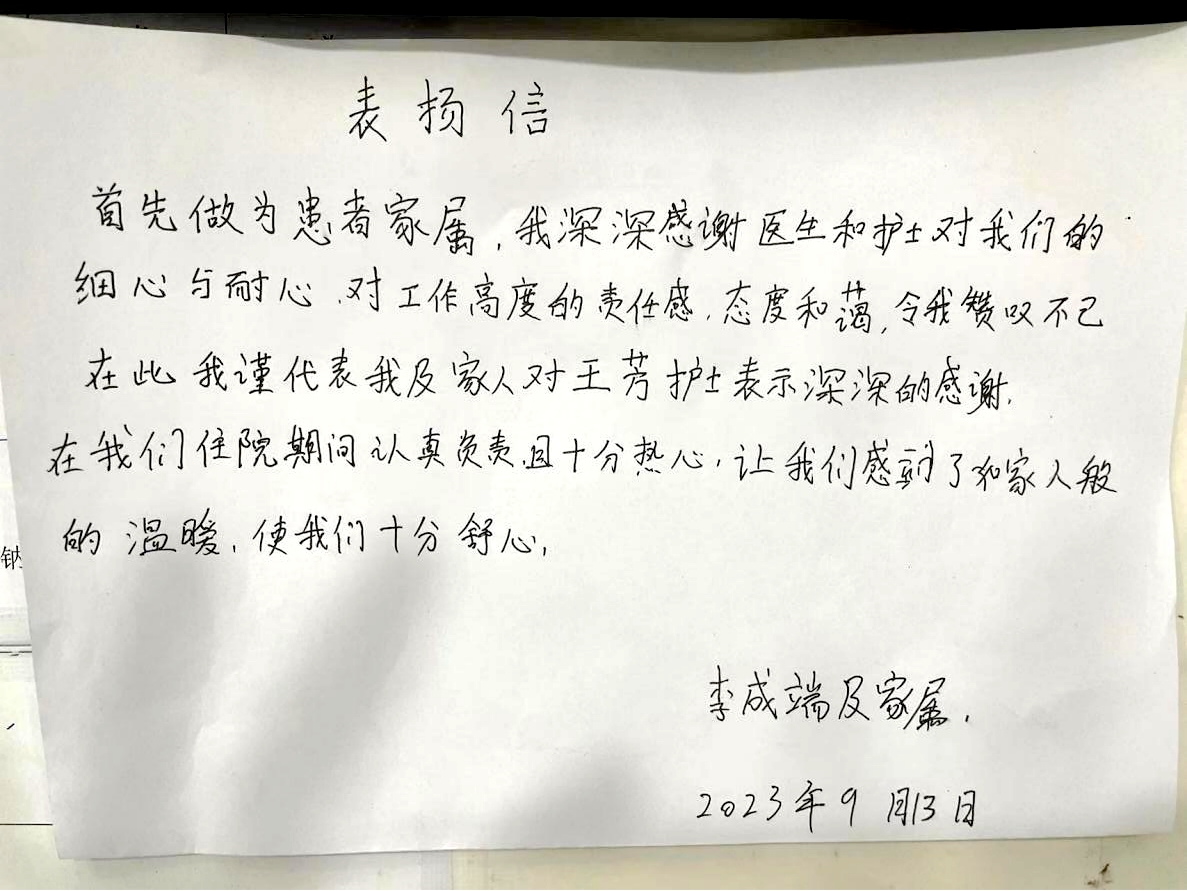 表扬信
首先做为患者家属，我深深感谢医生和护士对我们的
细心与耐心.对工作高度的责任感.态度和蔼,令我赞叹不已
在此我谨代表我及家人对王芳护士表示深深的感谢.
在我们住院期间认真负责且十分热心，让我们感到了和家人般
的温暖.使我们十分舒心,
李成端及家属.
2023年9月13日
钠